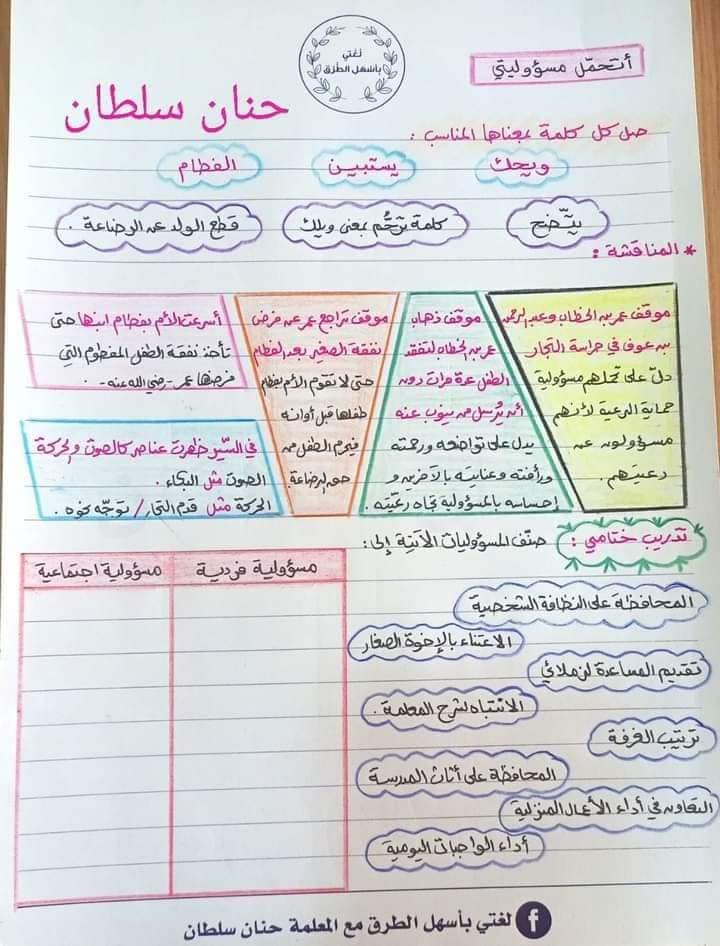 لغتي
بأسهل الطرق
أتحمّل مسؤوليتي
حنان سلطان
صل كل كلمة بمعناها المناسب :
ويحك
يستبين
الفطام
يتّضح
كلمة ترحُّم بمعنى ويلك
قطع الولد عن الرضاعة .
* المناقشة :
موقف عمر بن الخطاب وعبد الرحمن
بن عوف في حراسة التجار
دلّ على تحملهم مسؤولية
حماية الرعية لأنهم
مسؤولون عن
رعيتهم.
موقف ذهاب
عمر بن الخطاب لتفقد
الطفل عدة مرات دون
أن يُرسل من ينوب عنه
يدل على تواضعه ورحمته
ورأفته وعنايته بالآخرين و
إحساسه بالمسؤولية تجاه رعيّته .
موقف تراجع عمر عن فرض
نفقة الصغير بعد الفطام
حتى لا تقوم الأم بفطام
طفلها قبل أوانه
فيحرم الطفل من
حقه بالرضاعة
أسرعت الأم بفطام ابنها حتى
تأخذ نفقة الطفل المفطوم التي
فرضها عمر - رضي الله عنه -.
في السّير ظهرت عناصر كالصوت والحركة
الصوت مثل البكاء .
الحركة مثل قدم التجار / توجّه نحوه .
تدريب ختامي :
صنّف المسؤوليات الآتية إلى:
مسؤولية فردية
مسؤولية اجتماعية
المحافظة على النظافة الشخصية
الاعتناء بالإخوة الصغار
تقديم المساعدة لزملائي
الانتباه لشرح المعلمة .
ترتيب الغرفة
المحافظة على أثاث المدرسة
التعاون في أداء الأعمال المنزلية
أداء الواجبات اليومية
لغتي بأسهل الطرق مع المعلمة حنان سلطان